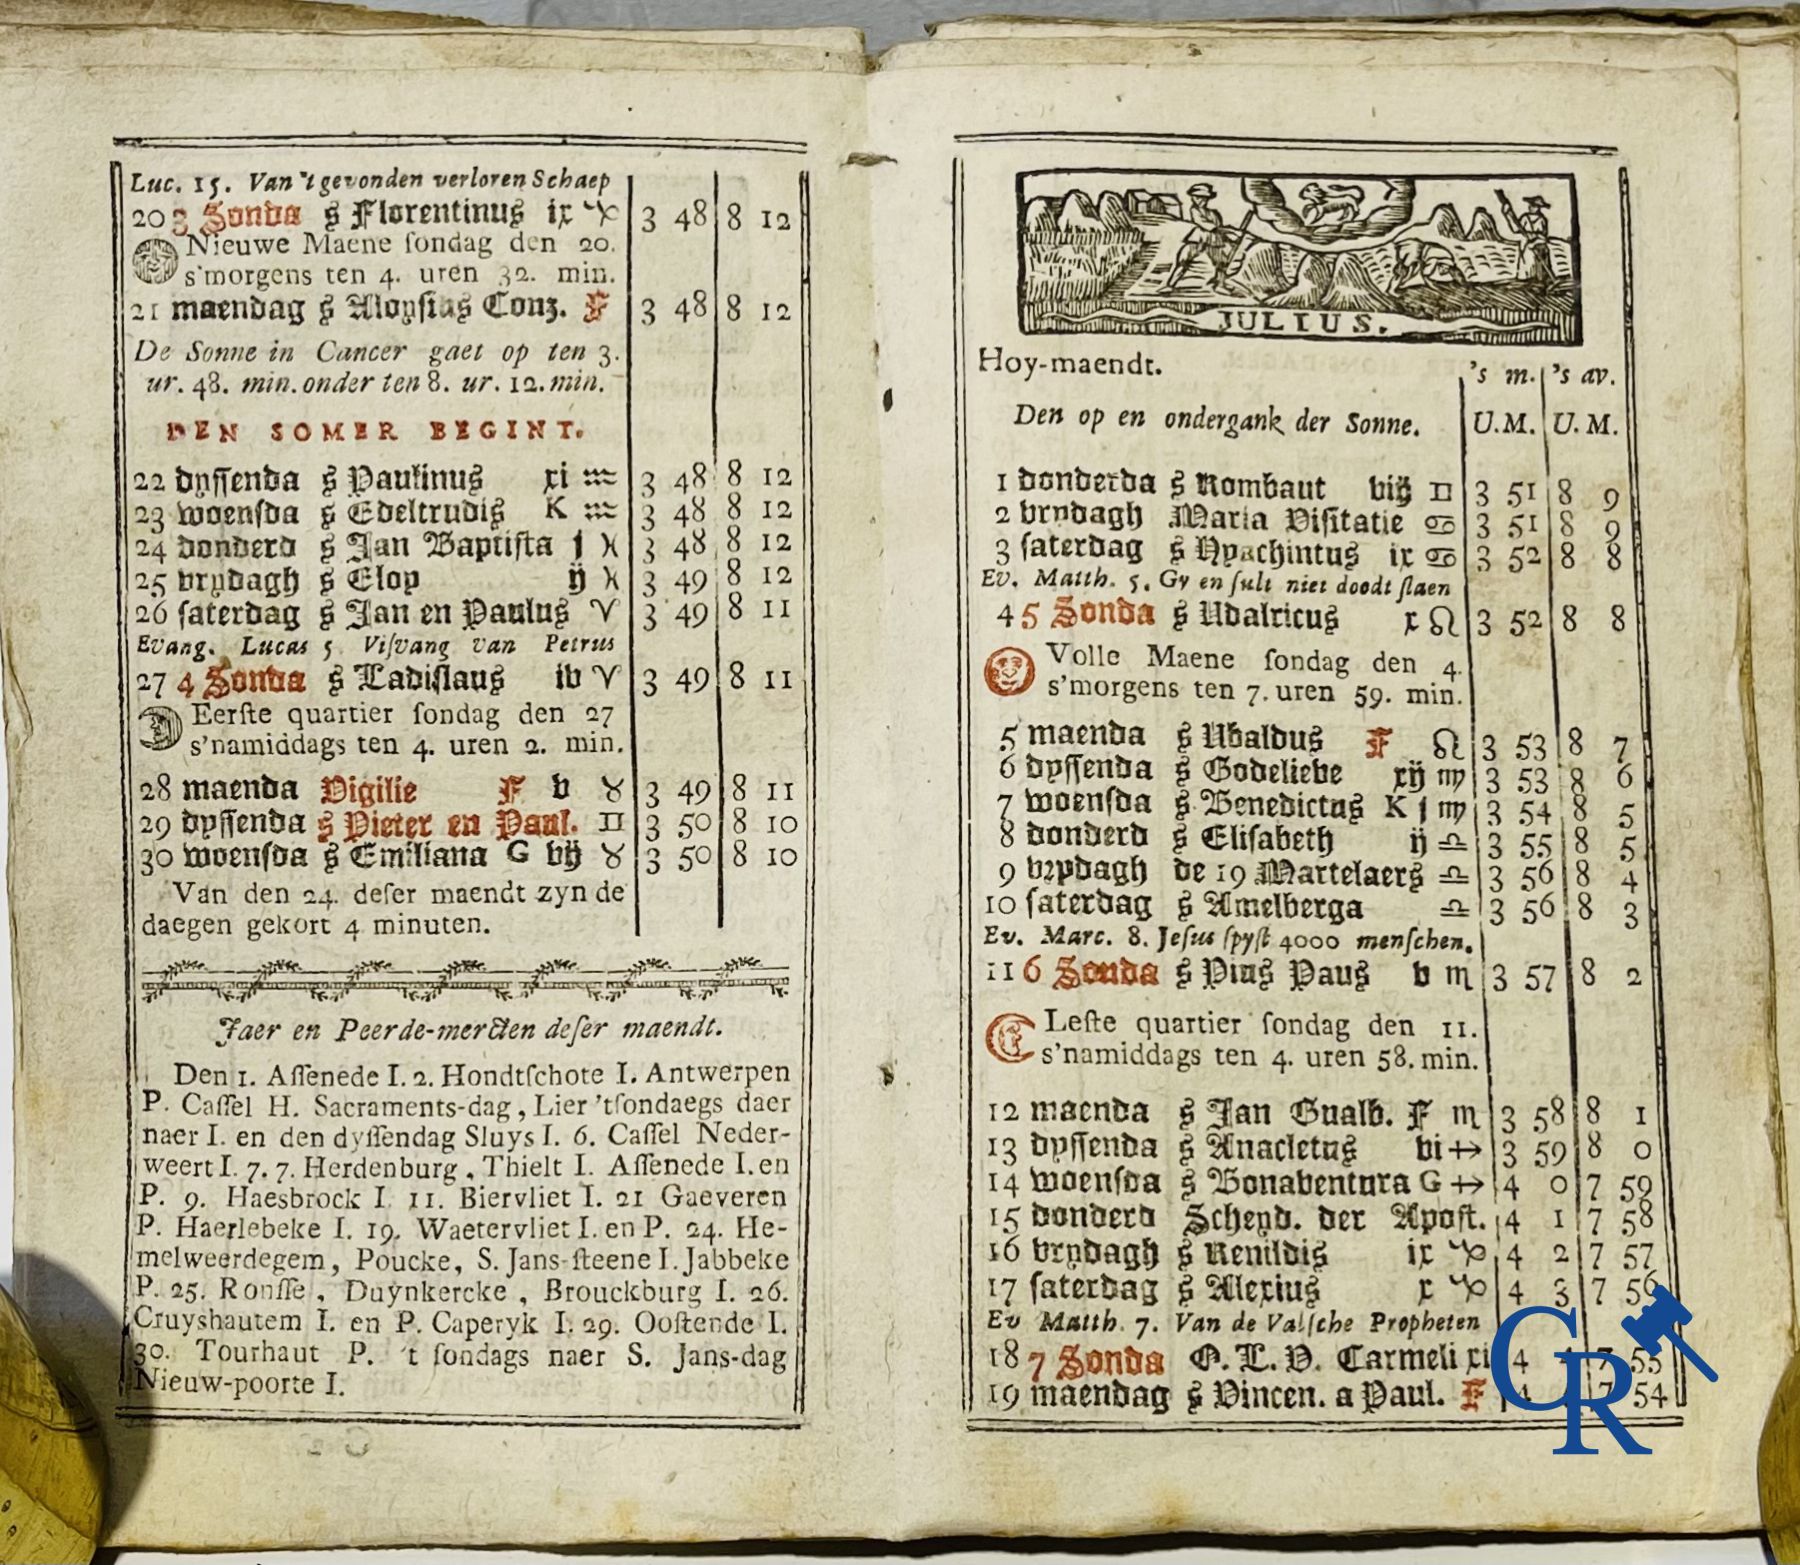 Luc. 15. Van 't gevonden verloren Schaep
20 3 Sonda s Florentinus ix ♑ 3 48 8 12
Nieuwe Maene sondag den 20.
s'morgens ten 4. uren 32. min.
21 maendag s Aloysius Conz. F 3 48 8 12
De Sonne in Cancer gaet op ten 3.
ur. 48. min. onder ten 8. ur. 12. min.
DEN SOMER BEGINT.
22 dyssenda s Paulinus xi ♒ 3 48 8 12
23 woensda s Edeltrudis K ♒ 3 48 8 12
24 donderd s Jan Baptista j ♓ 3 48 8 12
25 vrydagh s Eloy ij ♓ 3 49 8 12
26 saterdag s Jan en Paulus ♈ 3 49 8 11
Evang. Lucas 5 Visvang van Petrus
27 4 Sonda s Ladislaus iv ♈ 3 49 8 11
Eerste quartier sondag den 27
s'namiddags ten 4. uren 2. min.
28 maenda Vigilie F v ♉ 3 49 8 11
29 dyssenda s Pieter en Paul. ♊ 3 50 8 10
30 woensda s Emiliana G vij ♉ 3 50 8 10
Van den 24. deser maendt zyn de
daegen gekort 4 minuten.
Jaer en Peerde-mercten deser maendt.
Den 1. Assenede I. 2. Hondtschote I. Antwerpen
P. Cassel H. Sacraments-dag, Lier 'tsondaegs daer
naer I. en den dyssendag Sluys I. 6. Cassel Neder-
weert I. 7. 7. Herdenburg, Thielt I. Assenede I. en
P. 9. Haesbrock I. 11. Biervliet I. 21 Gaeveren
P. Haerlebeke I. 19. Waetervliet I. en P. 24. He-
melweerdegem, Poucke, S. Jans-steene I. Jabbeke
P. 25. Ronsse, Duynkercke, Brouckburg I. 26.
Cruyshautem I. en P. Caperyk I. 29. Oostende I.
30. Tourhaut P. 't sondags naer S. Jans-dag
Nieuw-poorte I.
JULIUS.
Hoy-maendt. 's m. 's av.
Den op en ondergank der Sonne. U. M. U. M.
1 donderda s Rombaut viij ♊ 3 51 8 9
2 vrydagh Maria Visitatie ♋ 3 51 8 9
3 saterdag s Hyachintus ix ♋ 3 52 8 8
Ev. Matth. 5. Gy en sult niet doodt slaen
4 5 Sonda s Udalricus x ♌ 3 52 8 8
Volle Maene sondag den 4.
s'morgens ten 7. uren 59. min.
5 maenda s Ubaldus F ♌ 3 53 8 7
6 dyssenda s Godelieve xij ♍ 3 53 8 6
7 woensda s Benedictus K j ♍ 3 54 8 5
8 donderd s Elisabeth ij ♎ 3 55 8 5
9 vrydagh de 19 Martelaers ♎ 3 56 8 4
10 saterdag s Amelberga ♎ 3 56 8 3
Ev. Marc. 8. Jesus spyst 4000 menschen.
11 6 Sonda s Pius Paus v ♏ 3 57 8 2
Leste quartier sondag den 11.
s'namiddags ten 4. uren 58. min.
12 maenda s Jan Gualb. F ♏ 3 58 8 1
13 dyssenda s Anacletus vi ♐ 3 59 8 0
14 woensda s Bonaventura G ♐ 4 0 7 59
15 donderd Scheyd. der Apost. 4 1 7 58
16 vrydagh s Renildis ix ♑ 4 2 7 57
17 saterdag s Alexius x ♑ 4 3 7 56
Ev Matth. 7. Van de Valsche Propheten
18 7 Sonda O. L. V. Carmeli xi 4 7 55
19 maendag s Vincen. a Paul. F 4 7 54
CR